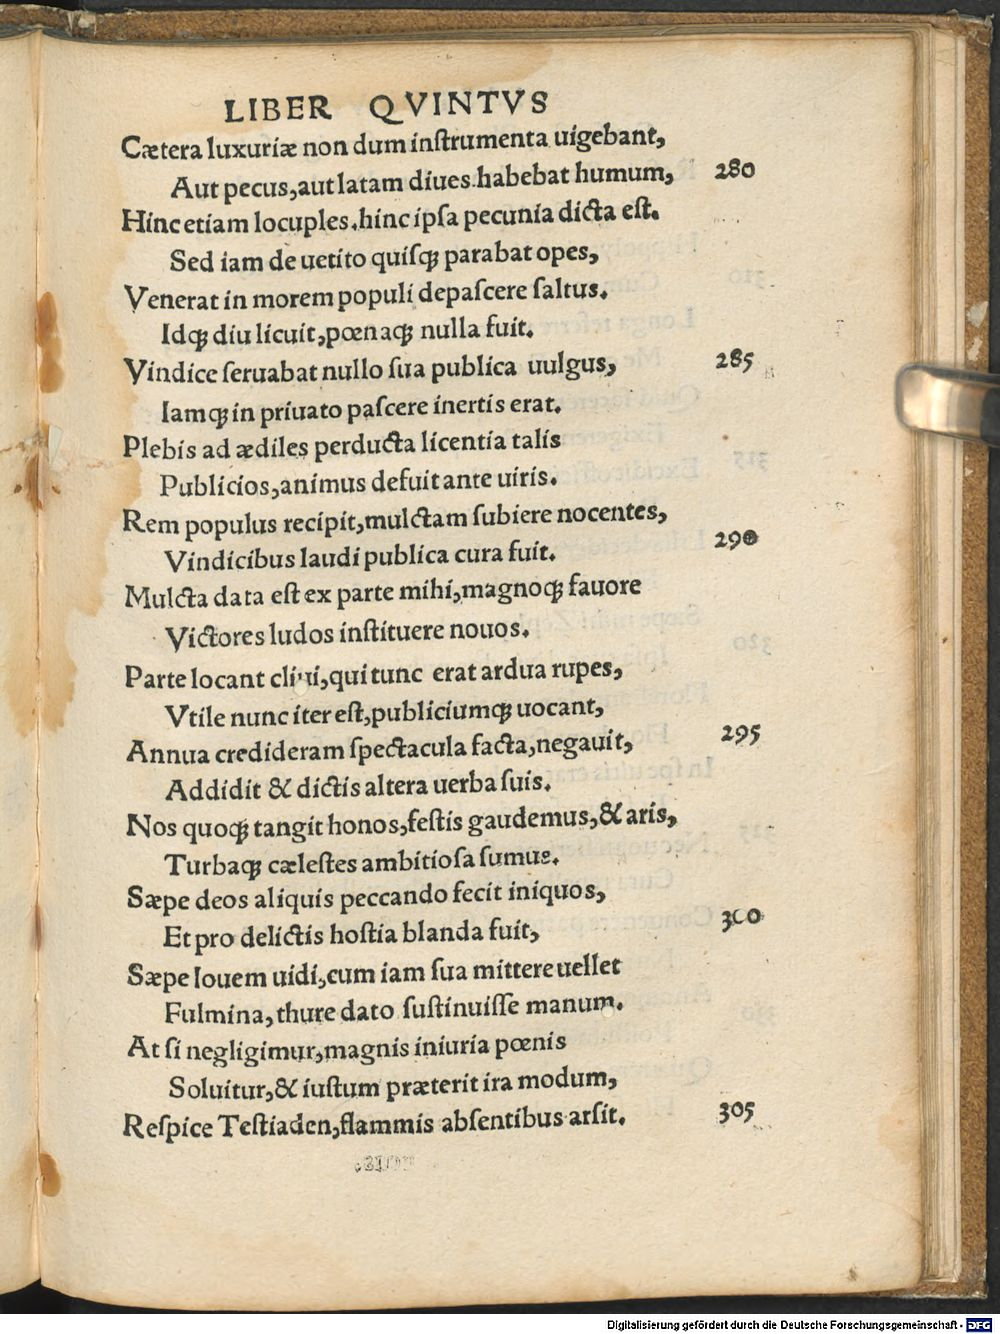 LIBER QVINTVS
Cætera luxuriæ non dum inſtrumenta uigebant,
Aut pecus, aut latam diues habebat humum, 280
Hinc etiam locuples. hinc ipſa pecunia dicta eſt.
Sed iam de uetito quiſqꝫ parabat opes,
Venerat in morem populi depaſcere ſaltus.
Idqꝫ diu licuit, pœnaqꝫ nulla fuit.
Vindice ſeruabat nullo ſua publica uulgus, 285
Iamqꝫ in priuato paſcere inertis erat.
Plebis ad ædiles perducta licentia talis
Publicios, animus defuit ante uiris.
Rem populus recipit, mulctam ſubiere nocentes,
Vindicibus laudi publica cura fuit. 290
Mulcta data eſt ex parte mihi, magnoqꝫ fauore
Victores ludos inſtituere nouos.
Parte locant cliui, qui tunc erat ardua rupes,
Vtile nunc iter eſt, publiciumqꝫ uocant,
Annua credideram ſpectacula facta, negauit, 295
Addidit & dictis altera uerba ſuis.
Nos quoqꝫ tangit honos, feſtis gaudemus, & aris,
Turbaqꝫ cæleſtes ambitioſa ſumus.
Sæpe deos aliquis peccando fecit iniquos,
Et pro delictis hoſtia blanda fuit, 300
Sæpe Iouem uidi, cum iam ſua mittere uellet
Fulmina, thure dato ſuſtinuiſſe manum.
At ſi negligimur, magnis iniuria pœnis
Soluitur, & iuſtum præterit ira modum,
Reſpice Teſtiaden, flammis abſentibus arſit. 305
Digitalisierung gefördert durch die Deutsche Forschungsgemeinschaft - DFG